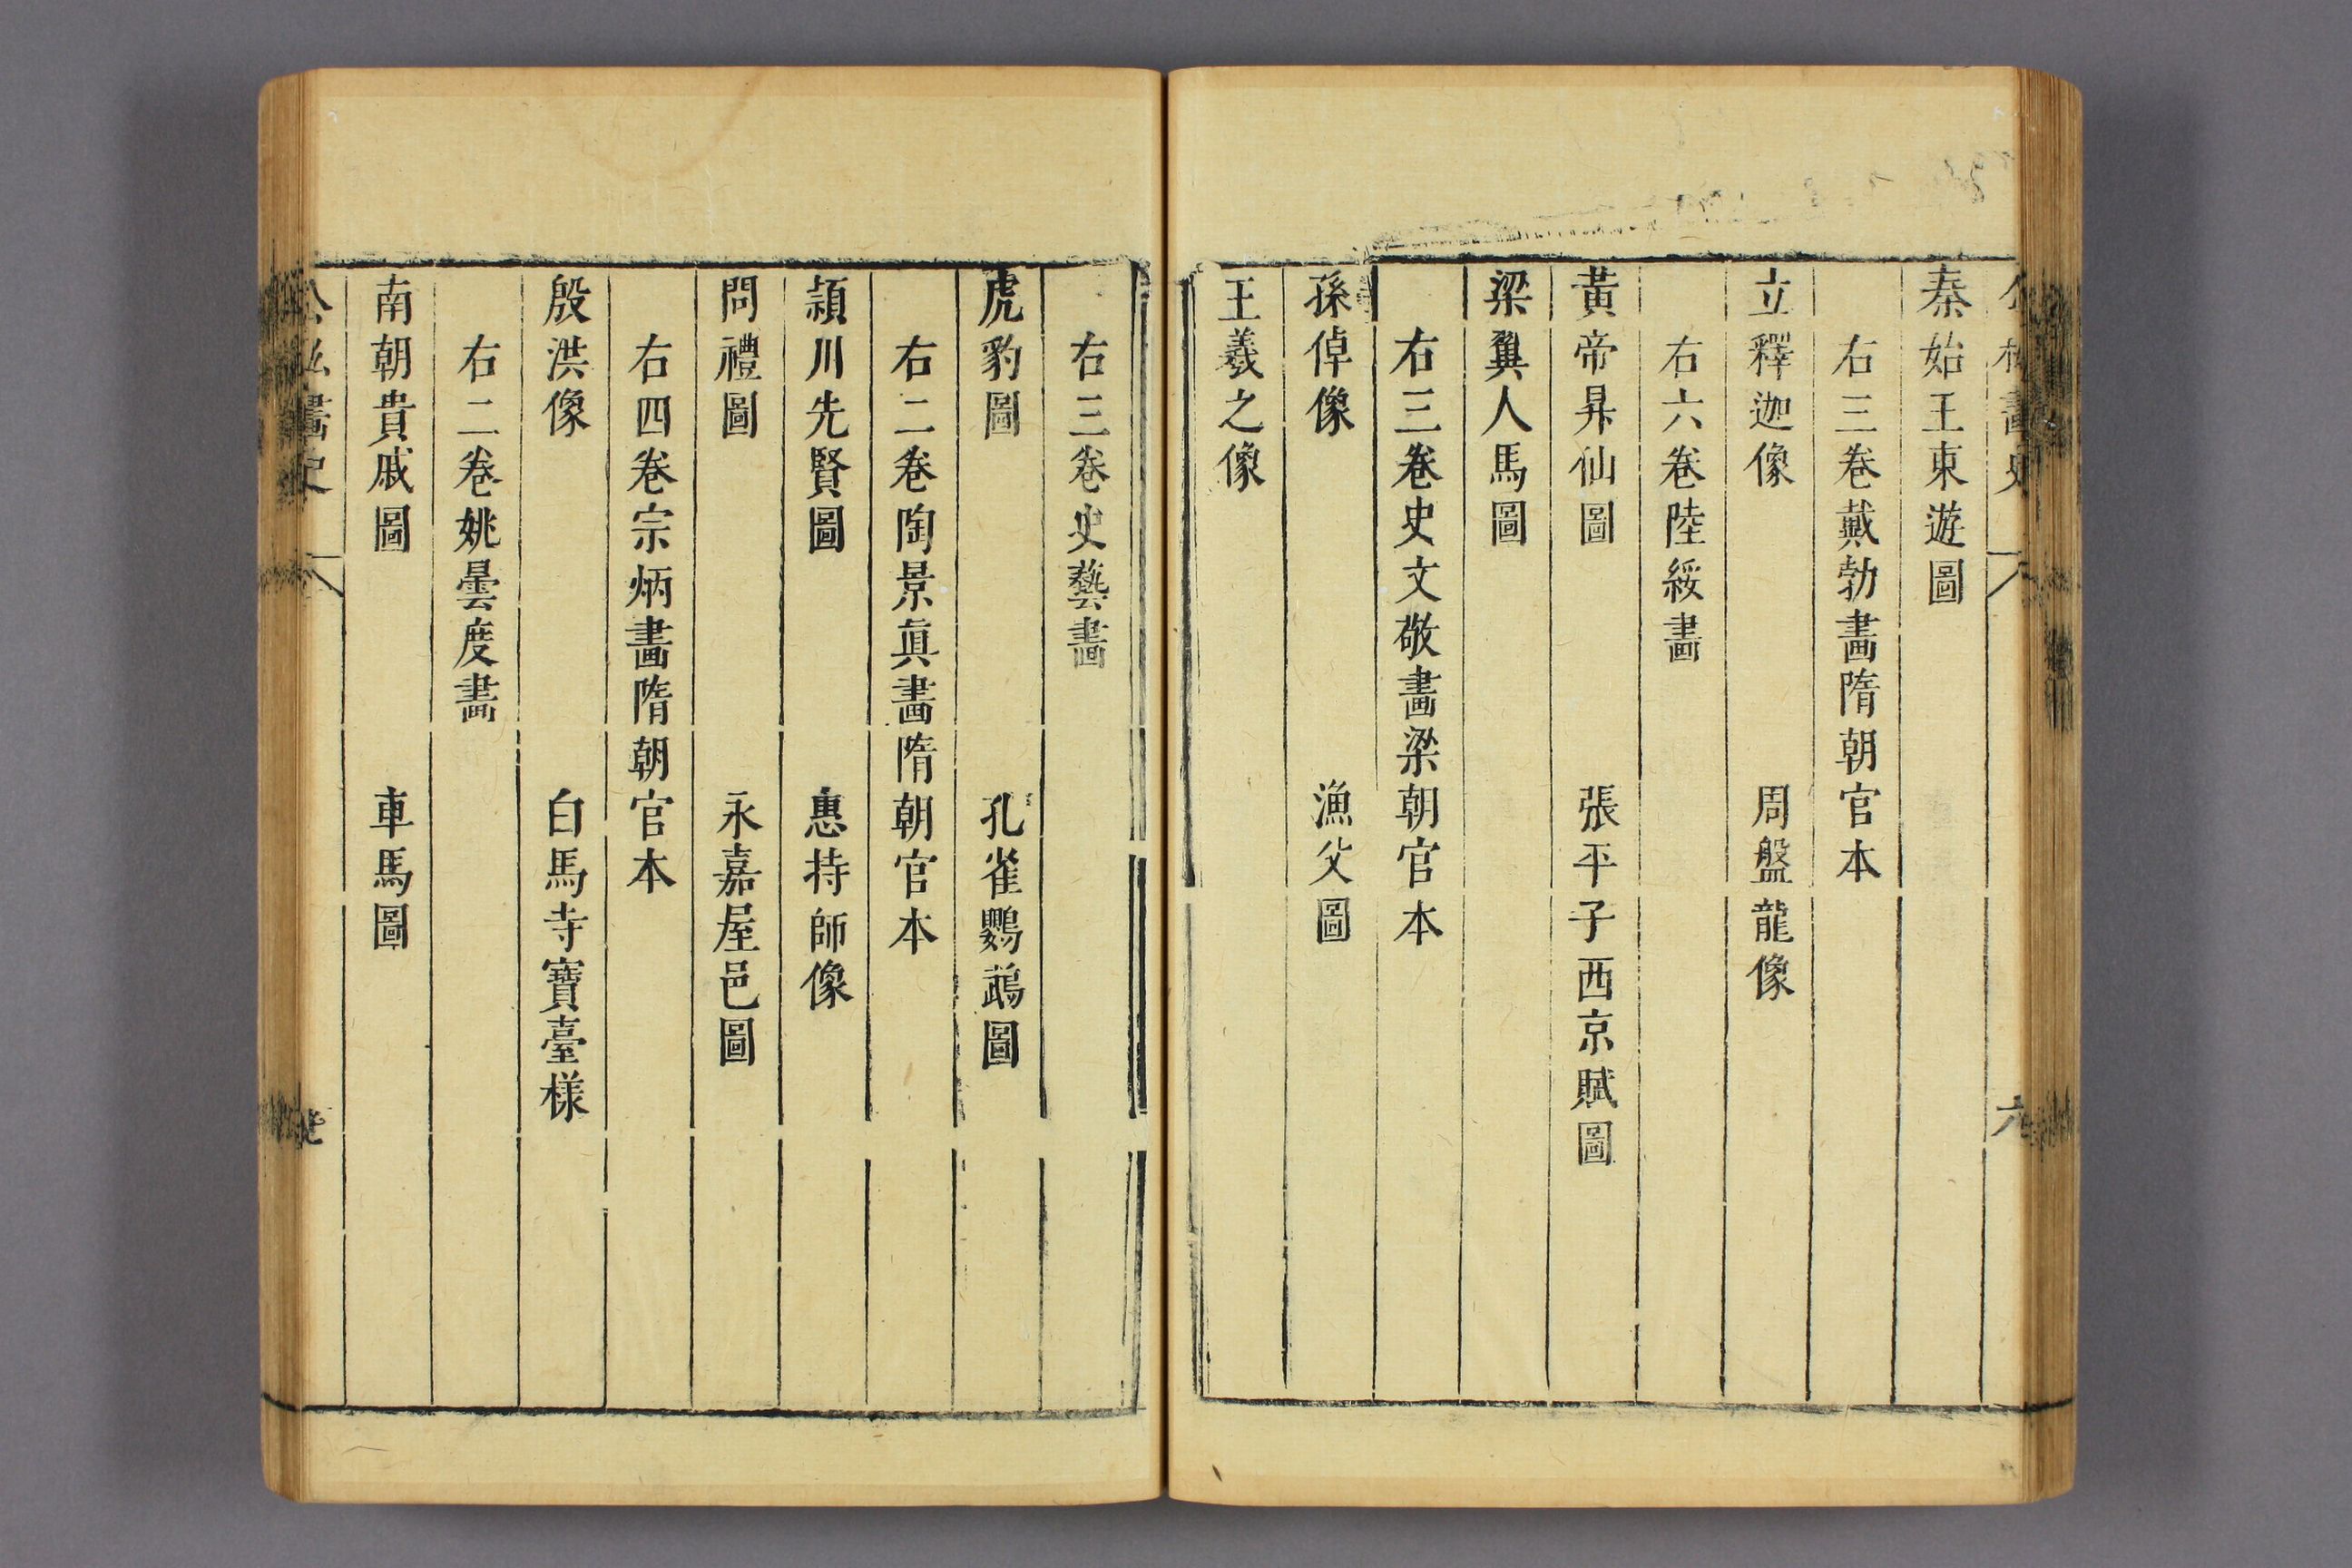 秦始王東遊圖
右三卷戴勃畫隋朝官本
立釋迦像　周盤龍像
右六卷陸綏畫
黃帝昇仙圖　張平子西京賦圖
梁冀人馬圖
右三卷史文敬畫梁朝官本
孫倬像　漁父圖
王羲之像
右三卷史藝畫
虎豹圖　孔雀鸚鵡圖
右二卷陶景眞畫隋朝官本
潁川先賢圖　惠持師像
問禮圖　永嘉屋邑圖
右四卷宗炳畫隋朝官本
殷洪像　白馬寺寶臺樣
右二卷姚曇度畫
南朝貴戚圖　車馬圖